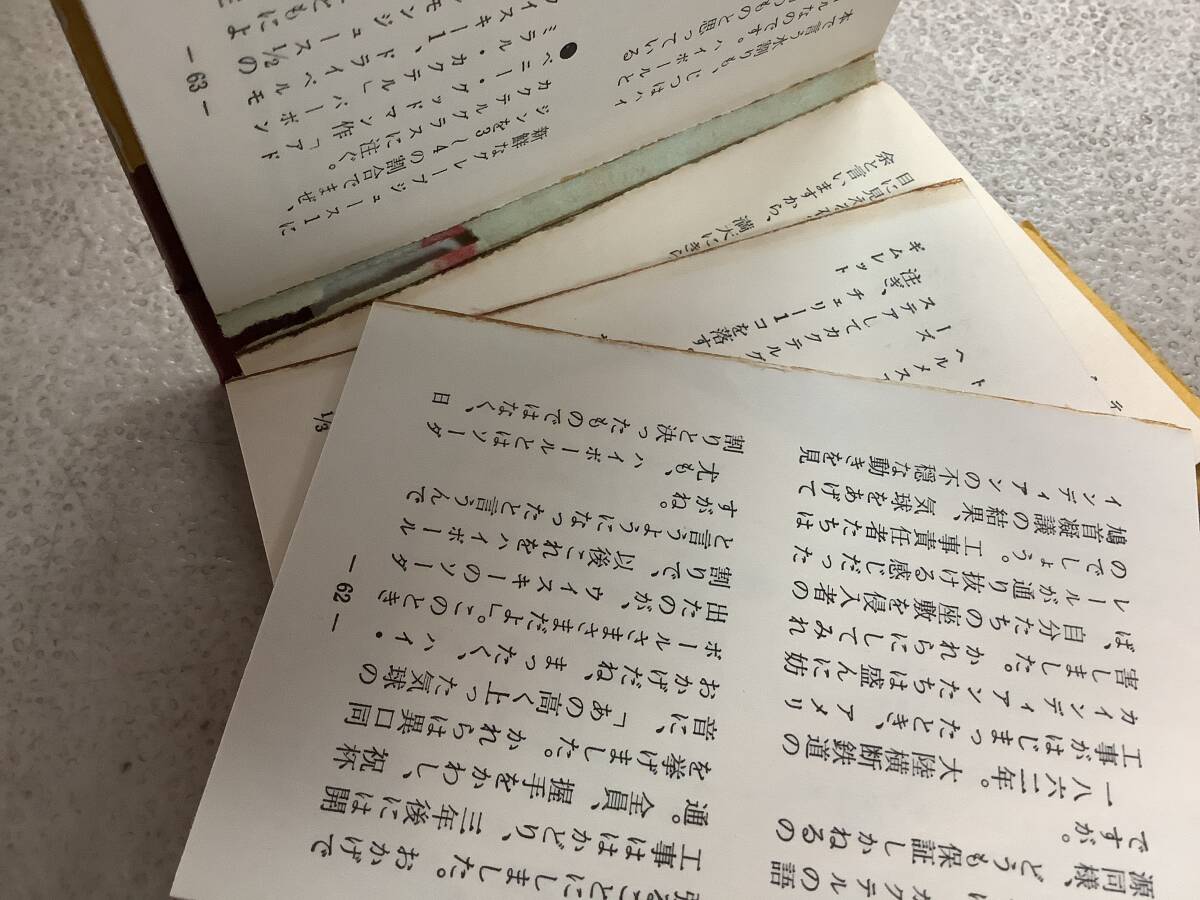 源同様、どうも保証しかねるの
ですが。
一八六二年。大陸横断鉄道の
工事がはじまったとき、アメリ
カインディアンたちは盛んに妨
害しました。かれらにしてみれ
ば、自分たちの座敷を侵入者の
レールが通り抜ける感じだった
のでしょう。工事責任者たちは
鳩首凝議の結果、気球をあげて
インディアンの不穏な動きを見
ることにしました。おかげで
工事ははかどり、三年後には開
通。全員、握手をかわし、祝杯
を挙げました。かれらは異口同
音に、「あの高く上った気球の
おかげだね、まったく、ハイ・
ボールさまさまだよ」このとき
出たのが、ウイスキーのソーダ
割りで、以後これをハイボール
と言うようになったと言うんで
すがね。
尤も、ハイボールとはソーダ
割りと決ったものではなく、日
― 62 ―
本で言う水割りも、じつはハイ
ルなのです。ハイボールと
つものと思っている
新鮮なグレープジュース1に
ジンを3〜4の割合でまぜ、
カクテルグラスに注ぐ。
●ペニー・グッドマン作「アド
ミラル・カクテル
イスキー1、ドライベルモ
ンジュース½
― 63 ―
余と言いますから、
目に見え
満天にき
ギムレット
注ぎ、チェリー1コを落す。
ステアしてカクテルグ
ース
ヘルメス
⅓